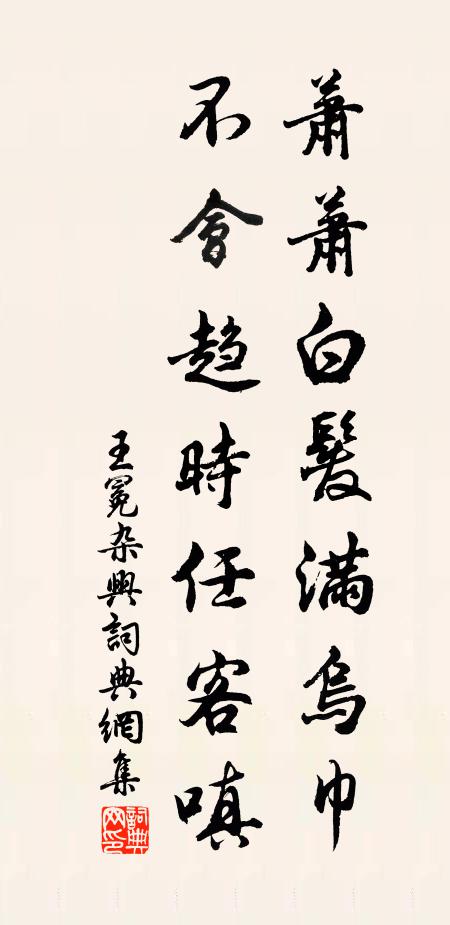 蕭蕭白髮滿烏巾
不會趨時任客嗔
王冕杂興詞典網集
詞典網印